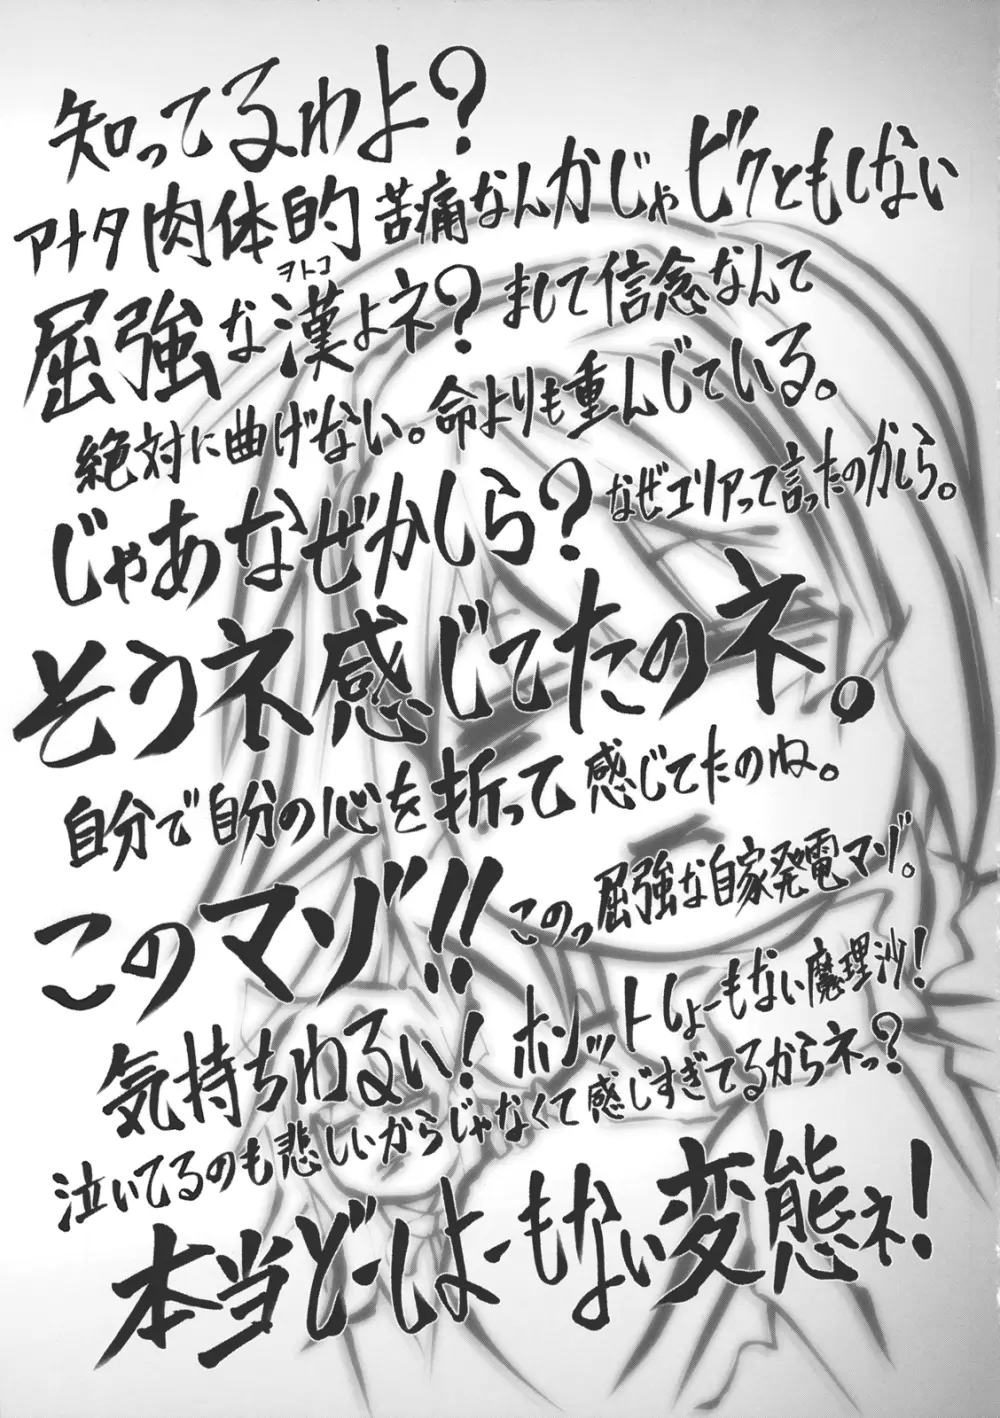 知ってるわよ？
アナタ肉体的苦痛なんかじゃビクともしない
屈強な漢よネ？まして信念なんて
ヲトコ
絶対に曲げない。命よりも重んじている。
じゃあなぜかしら？なぜユリアって言ったのかしら。
そうネ感じてたのネ。
自分で自分の心を折って感じてたのね。
このマゾ！！このっ屈強な自家発電マゾ。
気持ちわるい！ホンットしょーもない魔理沙！
泣いてるのも悲しいからじゃなくて感じすぎてるからネっ？
本当どーしよーもない変態ネ！